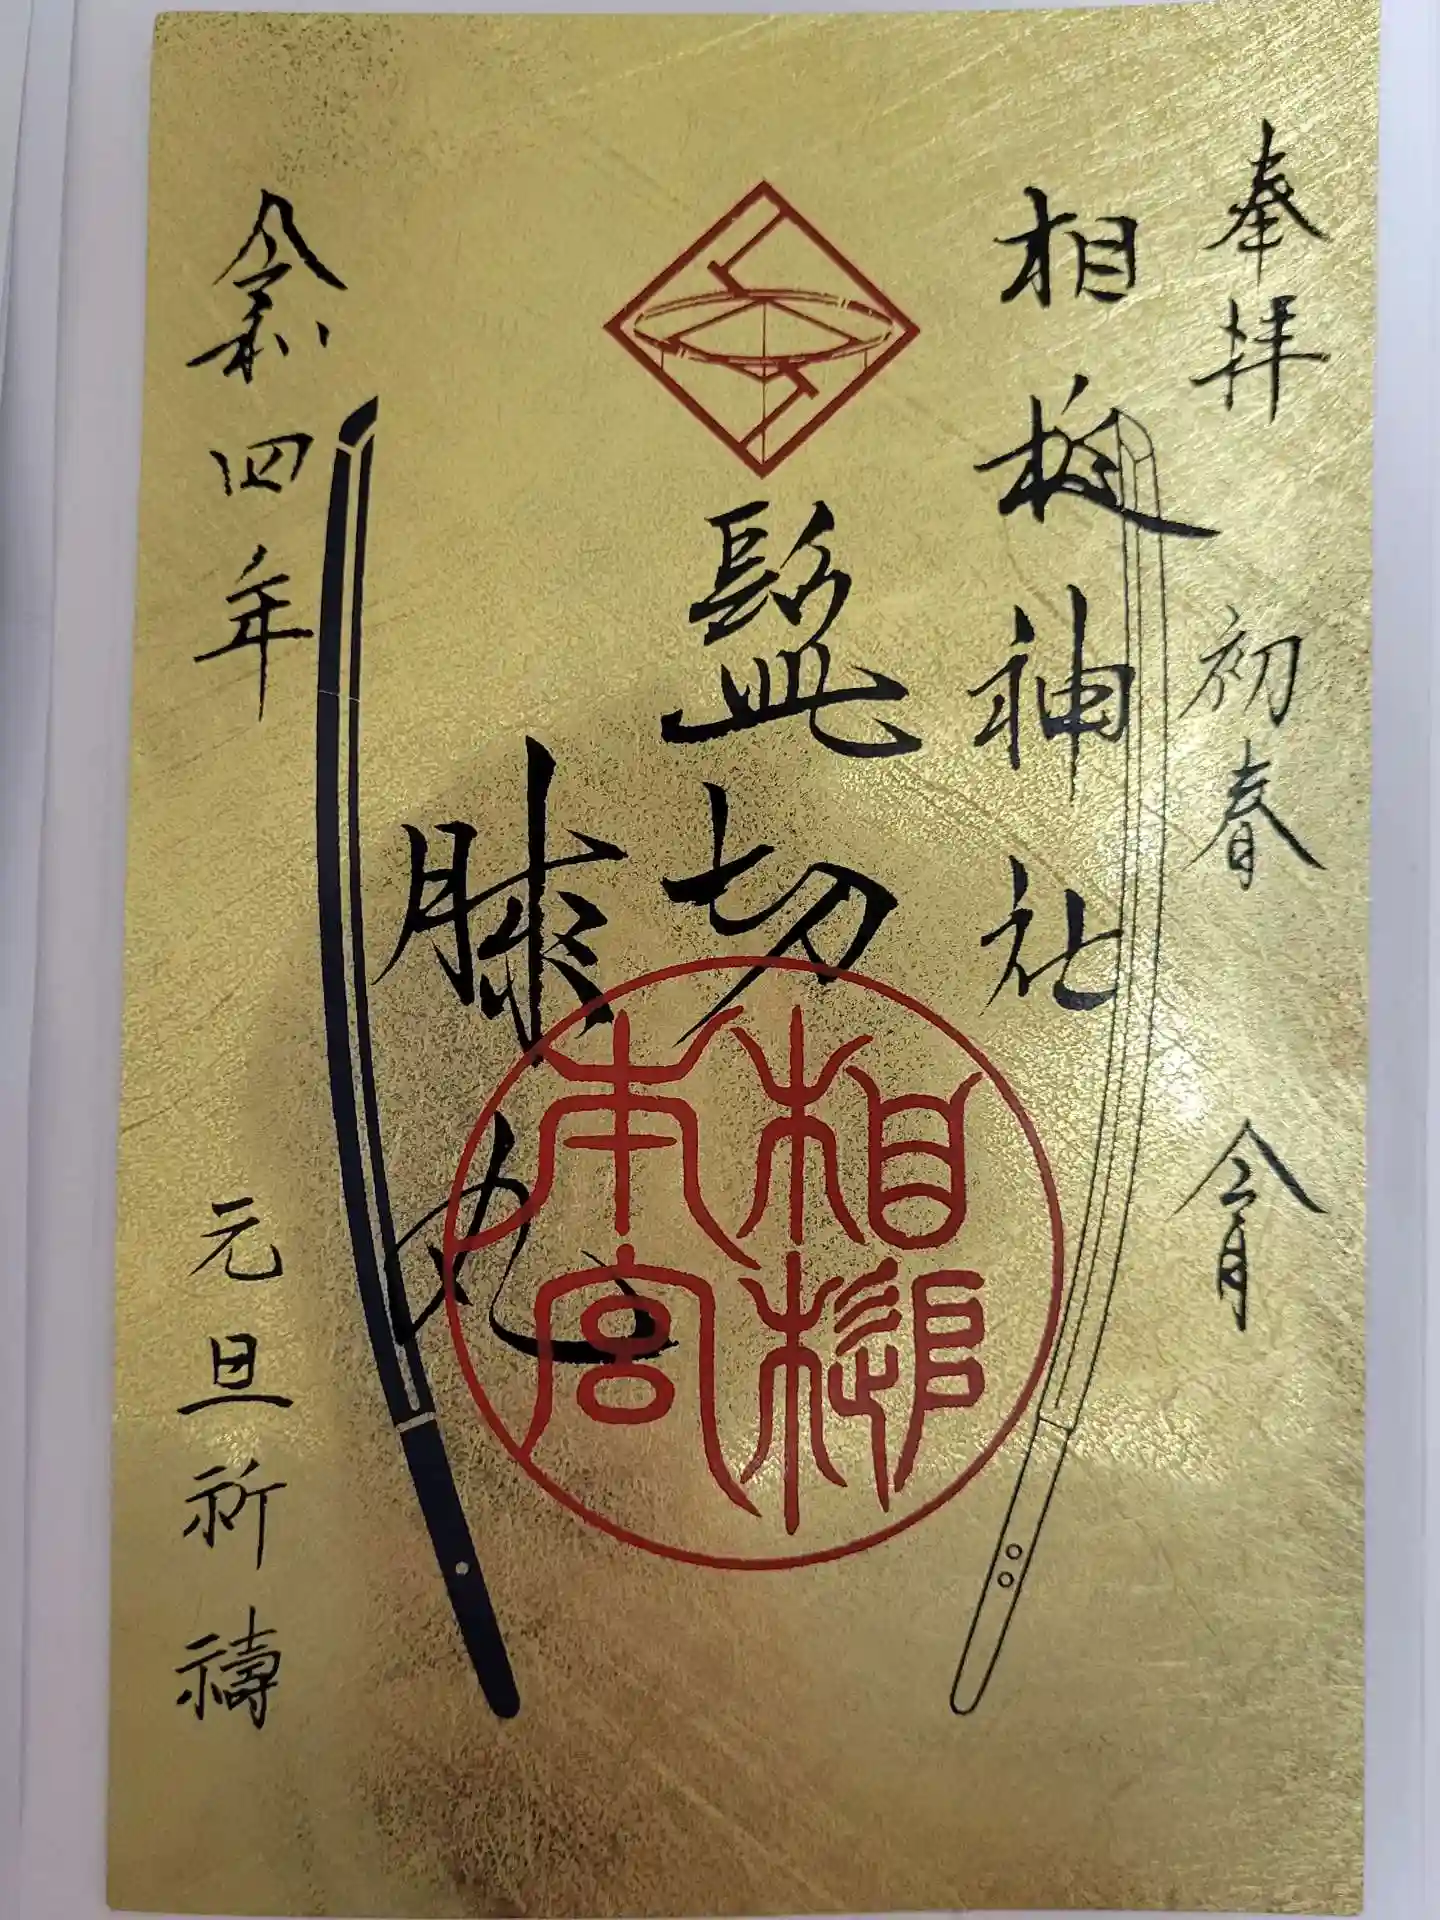 奉拝 初春 令月
相槌神社
髭切
膝丸
相槌
本宮
令和四年 元旦祈祷